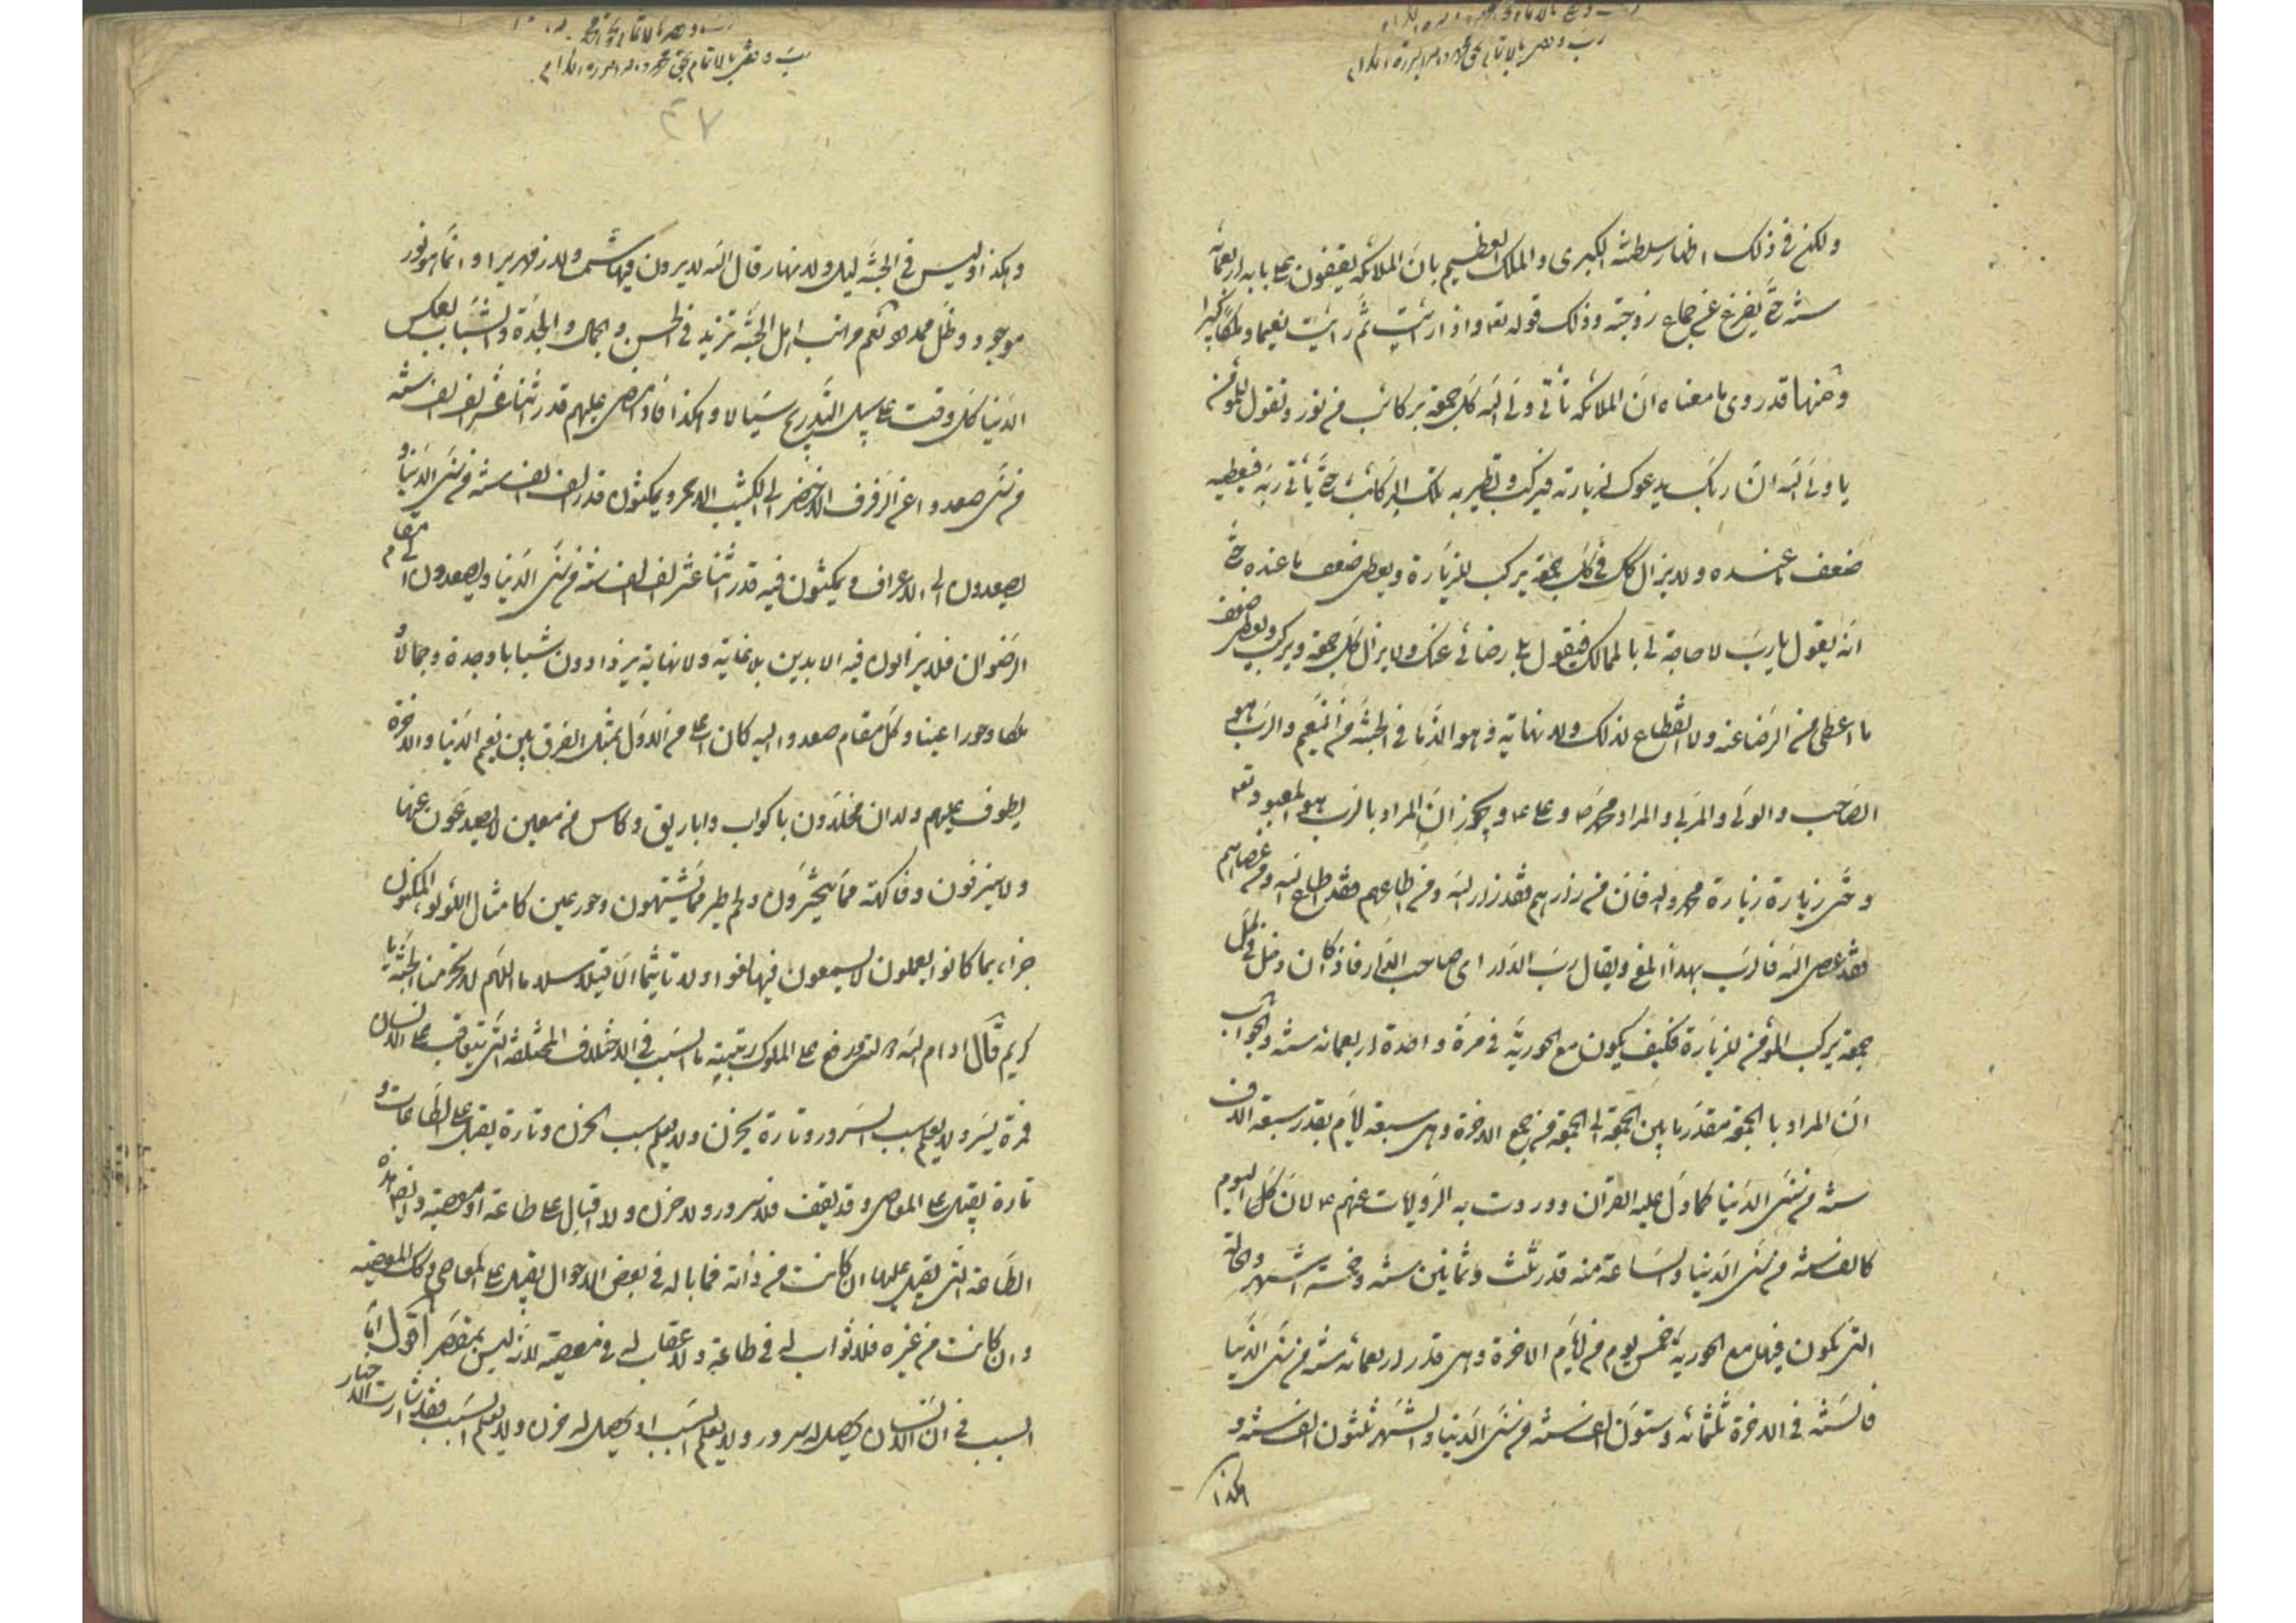 رب وفق بالاتمام بحق محمد واله البررة الكرام
ولكن في ذلك اظهار سلطنته الكبرى والملك العظيم بان الملائكة يقفون على بابه اربعمائة
سنة حتى يفرغ عن جماع زوجته وذلك قوله تعا واذا رايت ثم رايت نعيما وملكا كبيرا
ومنها قد روى ما معناه ان الملائكة تأتي ولي الله كل جمعة بركائب من نور وتقول للمؤمن
يا ولي الله ان ربك يدعوك لزيارته فيركب وتطير به تلك الركائب حتى يأتي ربه فيعطيه
ضعف ما عنده ولا يزال كل في كل جمعة يركب للزيارة ويعطى ضعف ما عنده حتى
انه يقول يا رب لا حاجة لي بالممالك فيقول بلى رضائي عنك ولا يزال كل جمعة ويركب ويعطى ضعف
ما اعطى من الرضا عنه ولا انقطاع لذلك ولا نهاية وهو الذ ما في الجنة من النعيم والرب هو
الصاحب والولي والمربي والمراد محمد ص وعلى ع ويجوز ان المراد بالرب هو المعبود تعا
وحتى زيارة زيارة محمد واله فان من زارهم فقد زار الله ومن اطاعهم فقد اطاع الله ومن عصاهم
فقد عصى الله فالرب بهذا المعنى ويقال رب الدار اى صاحب الدار فاذا كان ذلك في كل
جمعة يركب المؤمن للزيارة فكيف يكون مع الحورية في مرة واحدة اربعمائة سنة والجواب
ان المراد بالجمعة مقدر ما بين الجمعة الى الجمعة من جمع الاخرة وهى سبعة ايام بقدر سبعة الاف
سنة من سنى الدنيا كما دل عليه القران ووردت به الروايات عنهم ع لان كل اليوم
كالف سنة من سنى الدنيا والساعة منه قدر ثلث وثمانين سنة وخمسة اشهر والحالة
التى تكون فيها مع الحورية خمس يوم من ايام الاخرة وهى قدر اربعمائة سنة من سنى الدنيا
فالسنة في الاخرة ثلثمائة وستون الف سنة من سنى الدنيا والشهر ثلثون الف سنة و
هكذا
رب وفق بالاتمام بحق محمد واله البررة الكرام
٤٧
وهكذا وليس في الجنة ليل ولا نهار قال الله لا يرون فيها شمسا ولا زمهريرا وانما هو نور
موجود وظل ممدود نعم مراتب اهل الجنة تزيد في الحسن والجمال والجدة والشباب بعكس
الدنيا كل وقت على سبيل التدريج سيالا وهكذا فاذا مضى عليهم قدر اثنا عشر الف الف سنة
من سنى صعدوا عن الرفرف الاخضر الى الكثيب الاحمر ويمكثون قدر الف الف سنة من سنى الدنيا و
يصعدون الى الاعراف ويمكثون فيه قدر اثنا عشر الف الف سنة من سنى الدنيا ويصعدون الى مقام
الرضوان فلا يزالون فيه الابدين بلا غاية ولا نهاية يزدادون شبابا وجدة وجمالا و
ملكا وحورا عينا وكل مقام صعدوا اليه كان اعلى من الاول بمثل الفرق بين نعيم الدنيا والاخرة
يطوف عليهم ولدان مخلدون باكواب واباريق وكاس من معين لا يصدعون عنها
ولا ينزفون وفاكهة مما يتخيرون ولحم طير مما يشتهون وحور عين كامثال اللؤلؤ المكنون
جزاء بما كانوا يعملون لا يسمعون فيها لغوا ولا تاثيما الا قيلا سلاما اللهم لا تحرمنا الجنة يا
كريم قال ادام الله على الملوك رتبته ما السبب في الاختلاف المختلفة التى تتعاقب على الانسان
فمرة يسر ولا يعلم سبب السرور وتارة يحزن ولا يعلم سبب الحزن وتارة يقبل على الطاعات و
تارة يقبل على المعاصى وقد يقف فلا سرور ولا حزن ولا اقبال على طاعة او معصية وايضا هذه
الطاعة التى يقبل عليها ان كانت من ذاته فما باله في بعض الاحوال يقبل على المعاصى وكذلك المعصية
وان كانت من غيره فلا ثواب له في طاعة ولا عقاب له في معصية لانه ليس بمقصر اقول اما
السبب في ان الانسان يحصل له سرور ولا يعلم السبب او يحصل له حزن ولا يعلم السبب فقد اشارت الاخبار